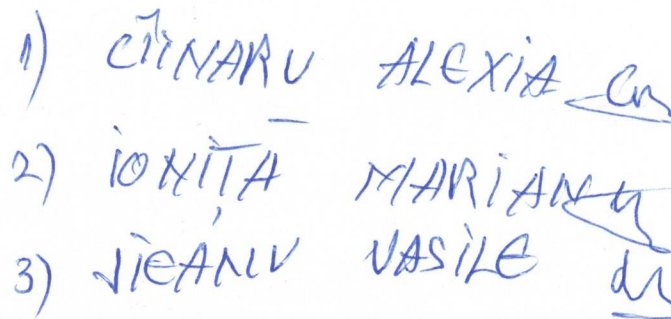 1) CÎINARU ALEXIA
2) IONIȚA MARIAN
3) JIEANU VASILE